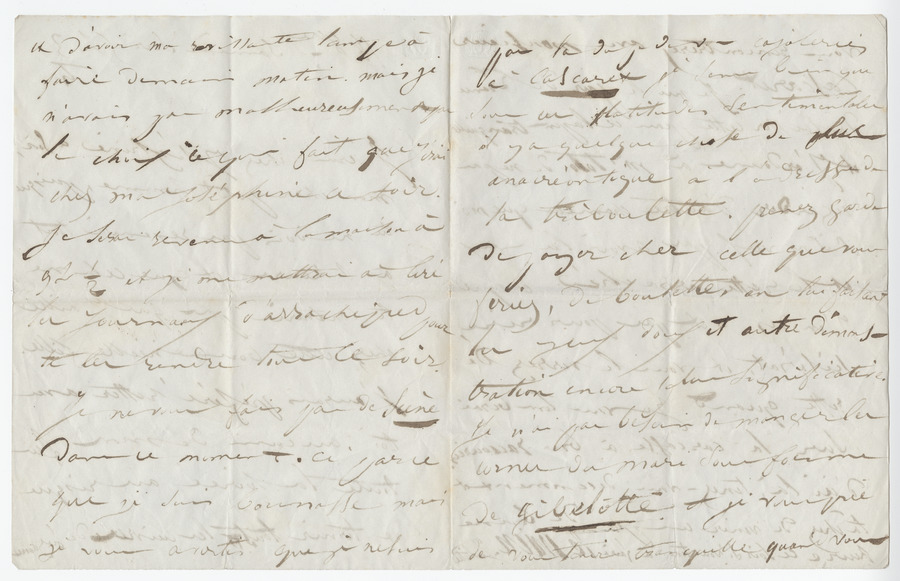 et d'avoir ma ravissante lampe à
faire demain matin. mais je
n'avais pas malheureusement
le choix ce qui fait que j'irai
chez ma Joséphine ce soir.
Je serai revenue à la maison à
9h ½ et je me mettrai à lire
les journaux d'arrachepied pour
te les rendre tous ce soir.
Je ne vous fais pas de scène
dans ce moment-ci parce
que je suis mais
je vous avertis que je ne suis
pas la dupe de vos cajoleries
de Cascaret je sens bien que
sous ces platitudes sentimentales
il y a quelque chose de plus
anacréontique à l'adresse de
la Triboulette. prenez garde
de payer cher celle que vous
feriez, de boulettes en lui faisant
les yeux doux et autre démons-
tration encore plus significative.
Je n'ai pas besoin de manger les
cornes du mari sous forme
de gibelotte et je vous prie
de vous tenir tranquille quand vous